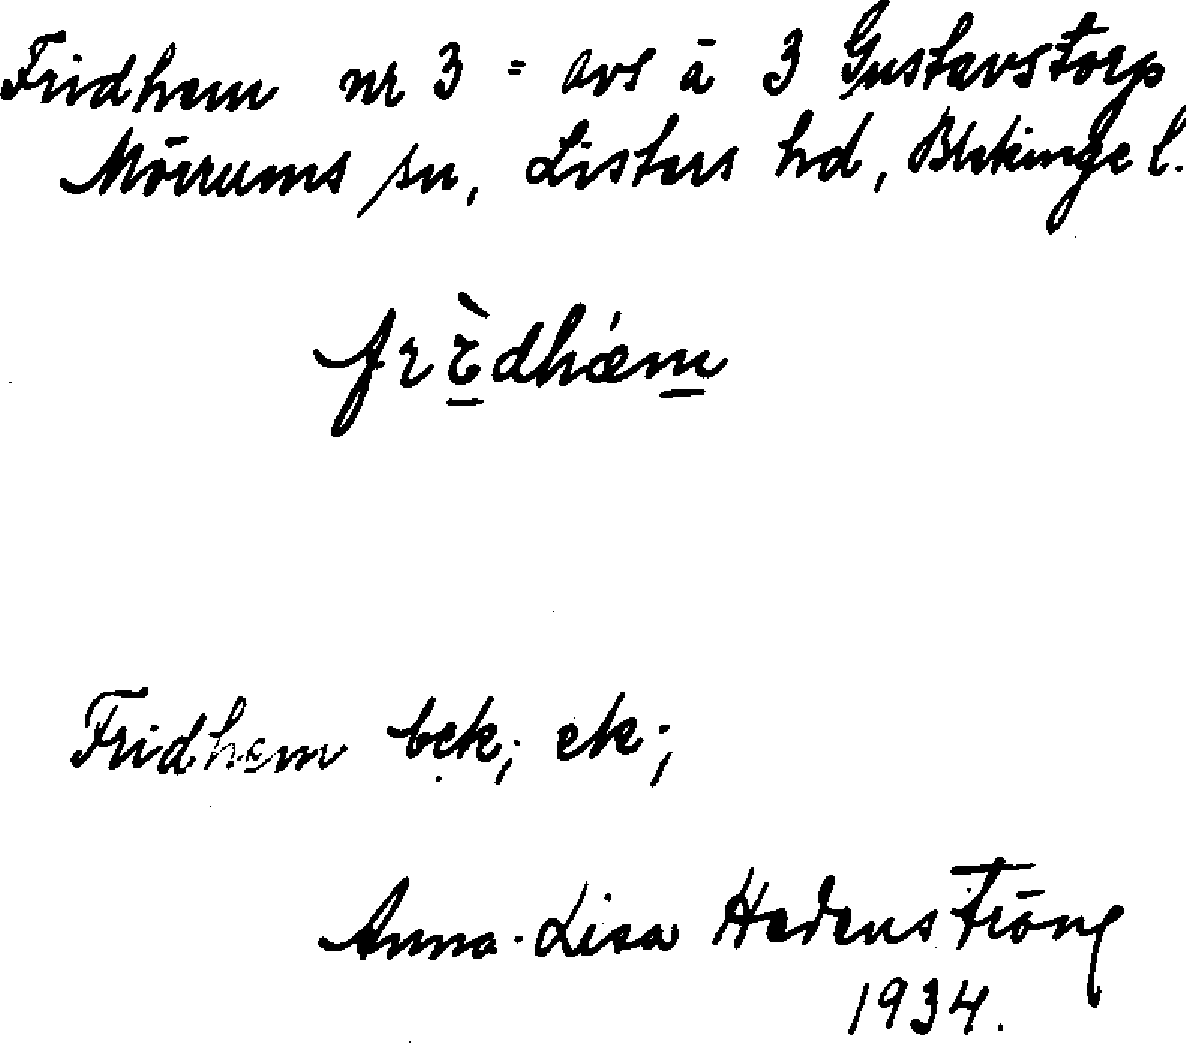 Fridhem nr 3 = avs å 3 Gustavstorp
Mörrums sn, Listers hd, Blekinge l.
Fridhem bek; ek;
Anna-Lisa Hedenström
1934.